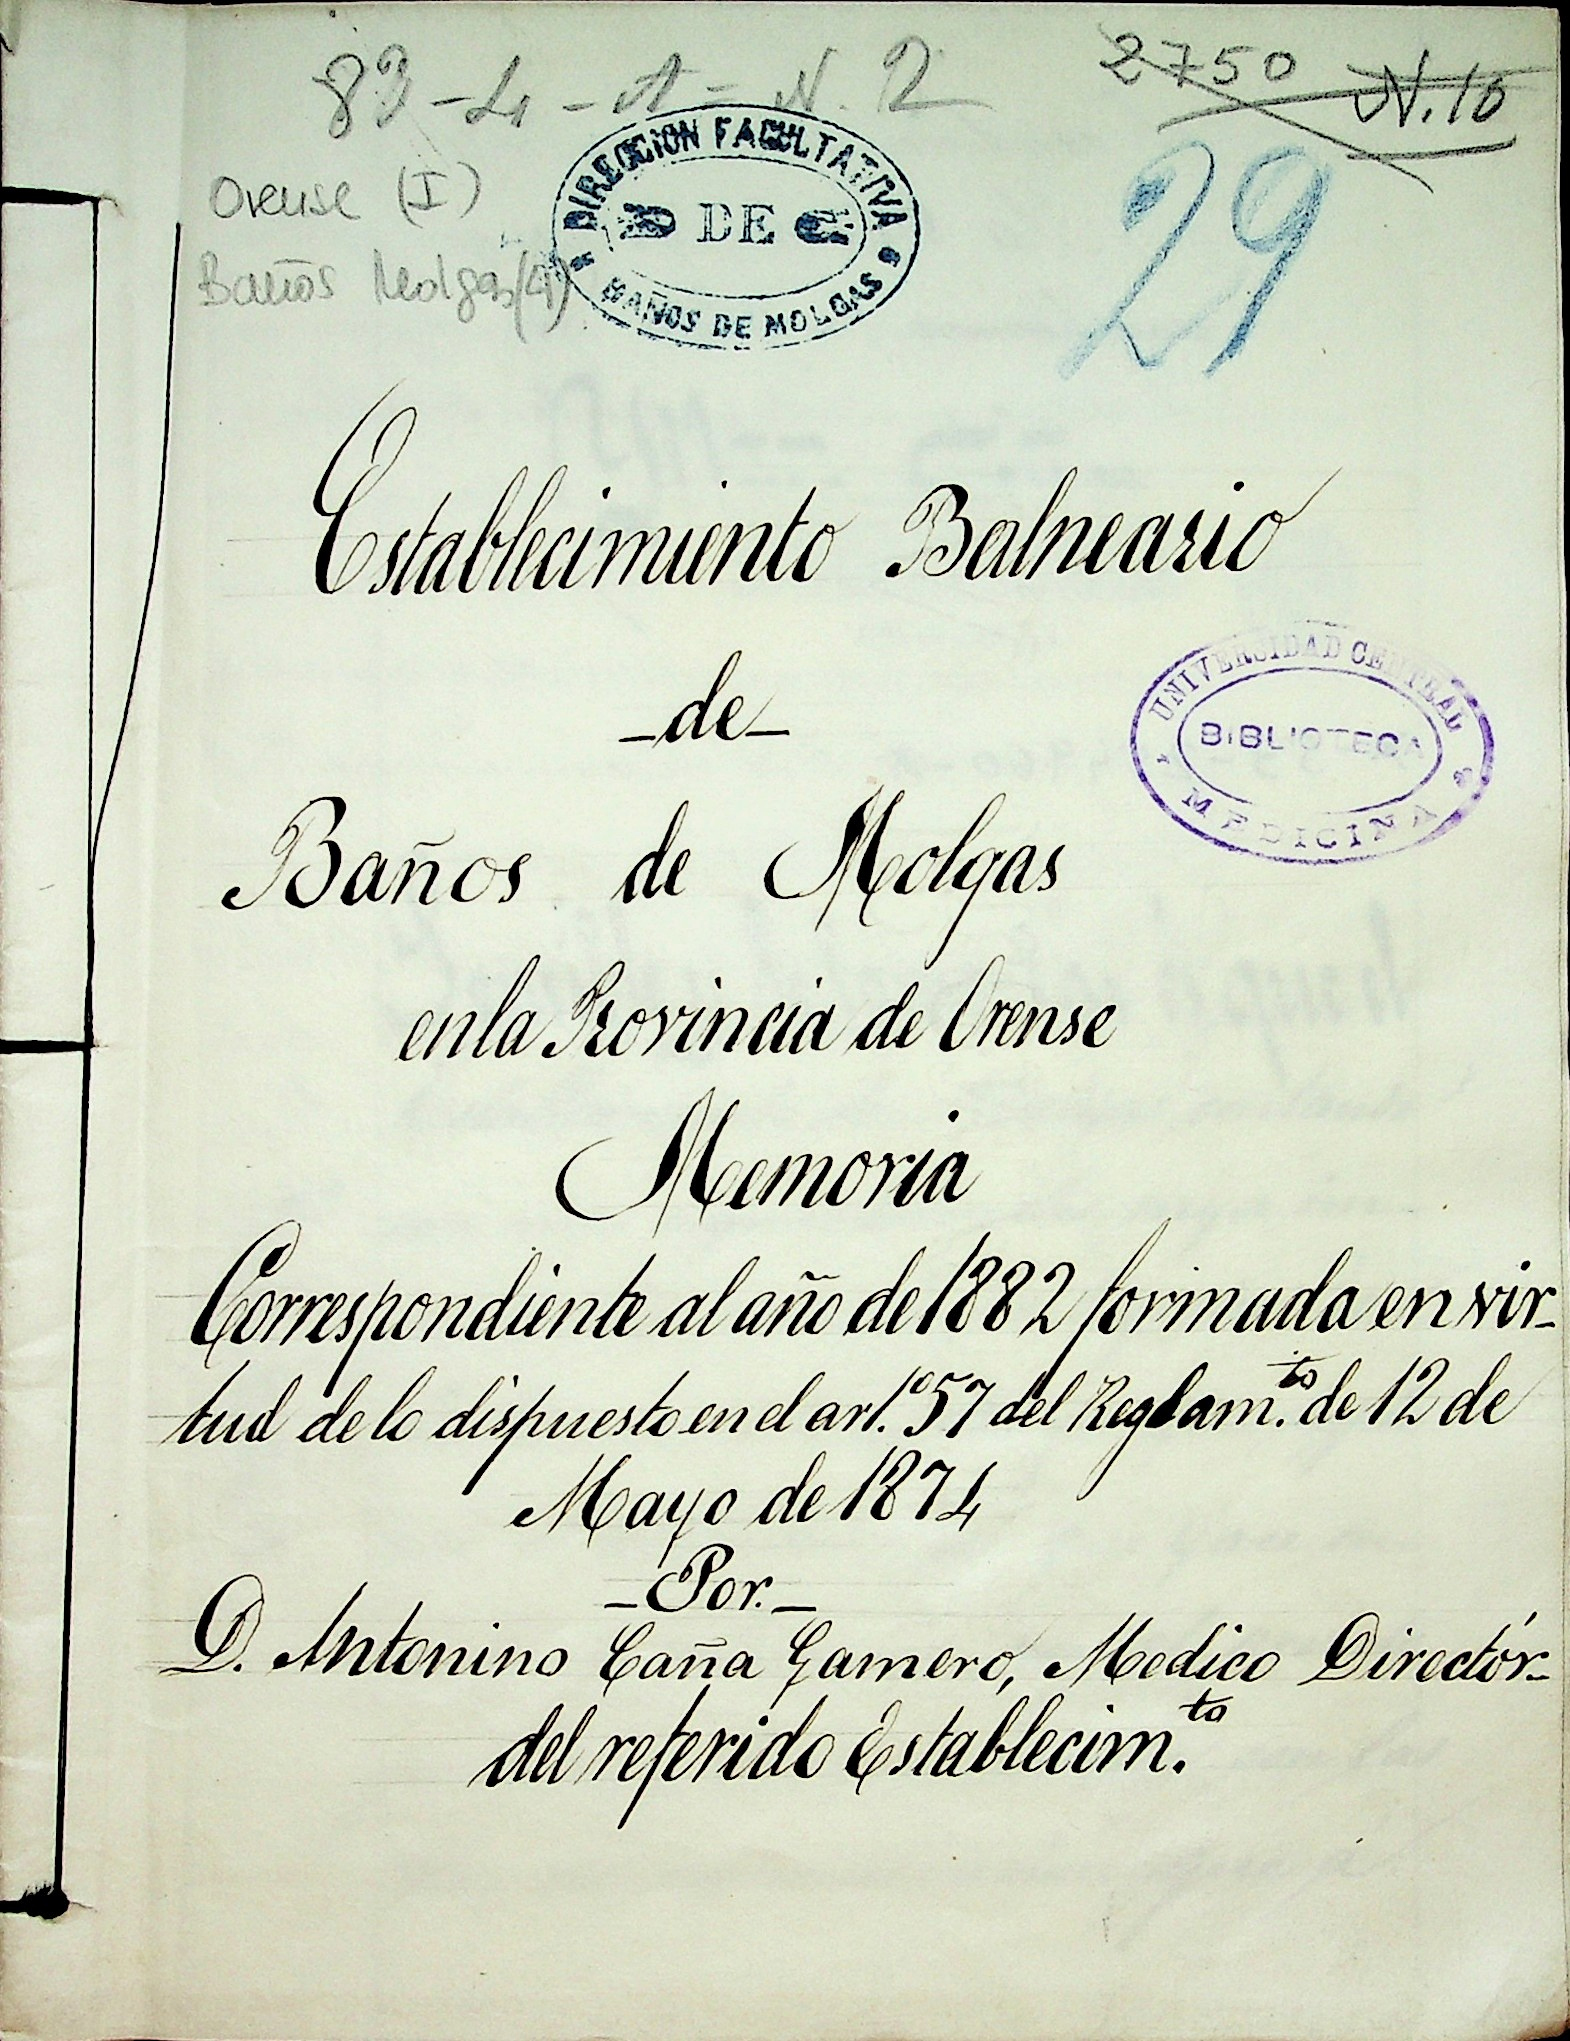 83-4-A-N. 2
2750 N.10
29
Orense (I)
Baños Molgas (4)
DIRECCION FACULTATIVA
DE
BAÑOS DE MOLGAS
Establecimiento Balneario
-de-
UNIVERSIDAD CENTRAL
BIBLIOTECA
MEDICINA
Baños de Molgas
en la Provincia de Orense
Memoria
Correspondiente al año de 1882 formada en vir-
tud de lo dispuesto en el art.º 57 del Reglam.to de 12 de
Mayo de 1874
-Por.-
D. Antonino Caña Gamero, Medico Directór-
del referido Establecim.to